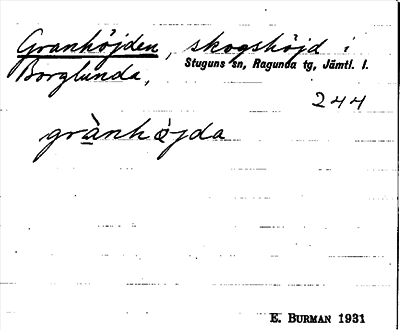 Granhöjden, skogshöjd i
Borglunda, Stuguns sn, Ragunda tg, Jämtl. l.
244
grànhòjda
E. BURMAN 1931